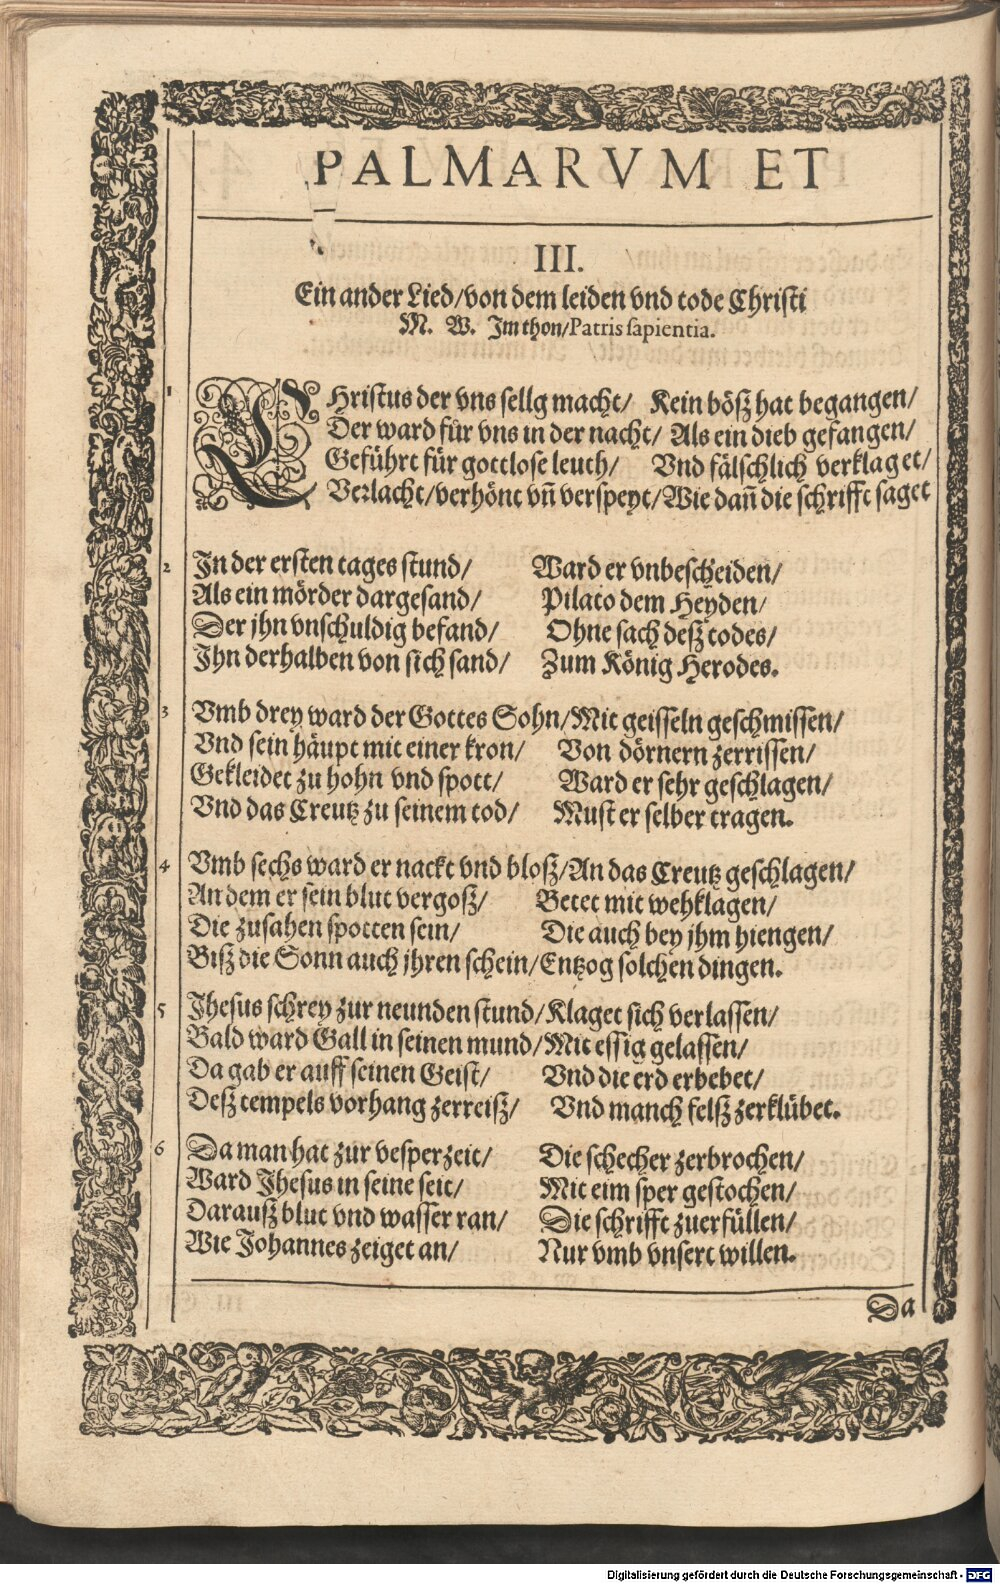 PALMARVM ET
III.
Ein ander Lied/von dem leiden vnd tode Christi
M. W. Im thon/Patris sapientia.
1 CHristus der vns sellg macht/ Kein böß hat begangen/
Der ward für vns in der nacht/ Als ein dieb gefangen/
Geführt für gottlose leuth/ Vnd fälschlich verklaget/
Verlacht/verhönt vn̄ verspeyt/Wie dan̄ die schrifft saget
2 In der ersten tages stund/ Ward er vnbescheiden/
Als ein mörder dargesand/ Pilato dem Heyden/
Der jhn vnschuldig befand/ Ohne sach deß todes/
Ihn derhalben von sich sand/ Zum König Herodes.
3 Vmb drey ward der Gottes Sohn/Mit geisseln geschmissen/
Vnd sein häupt mit einer kron/ Von dörnern zerrissen/
Gekleidet zu hohn vnd spott/ Ward er sehr geschlagen/
Vnd das Creutz zu seinem tod/ Must er selber tragen.
4 Vmb sechs ward er nackt vnd bloß/An das Creutz geschlagen/
An dem er sein blut vergoß/ Betet mit wehklagen/
Die zusahen spotten sein/ Die auch bey jhm hiengen/
Biß die Sonn auch jhren schein/Entzog solchen dingen.
5 Jhesus schrey zur neunden stund/Klaget sich verlassen/
Bald ward Gall in seinen mund/Mit essig gelassen/
Da gab er auff seinen Geist/ Vnd die erd erbebet/
Deß tempels vorhang zerreiß/ Vnd manch felß zerklübet.
6 Da man hat zur vesperzeit/ Die schecher zerbrochen/
Ward Jhesus in seine seit/ Mit eim sper gestochen/
Darauß blut vnd wasser ran/ Die schrifft zuerfüllen/
Wie Johannes zeiget an/ Nur vmb vnsert willen.
Da
Digitalisierung gefördert durch die Deutsche Forschungsgemeinschaft - DFG